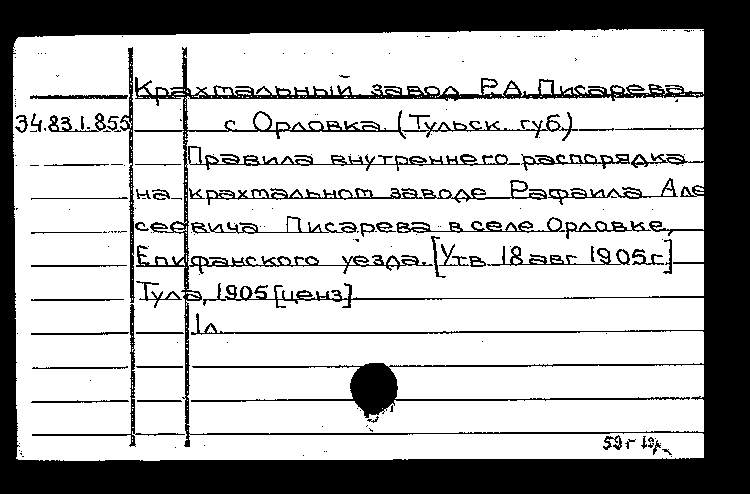 Крахтальный завод Р.А. Писарева.
34.83.1.855 с Орловка. (Тульск. губ.)
Правила внутреннего распорядка
на крахтальном заводе Рафаила Але
сеевича Писарева в селе Орловке,
Епифанского уезда. [Утв 18 авг 1905 г.]
Тула, 1905 [ценз]
1л.
59г